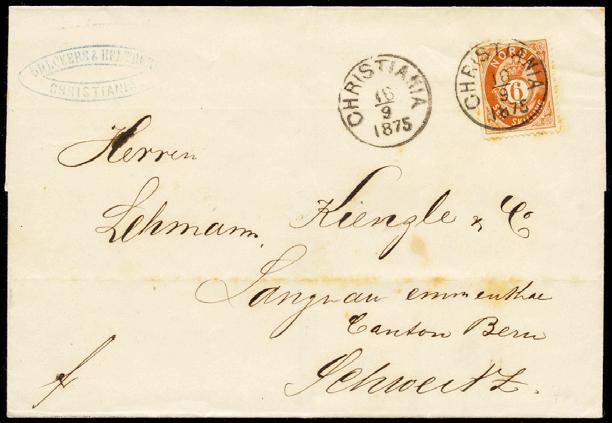 & CHRISTIANIA
CHRISTIANIA
16
9
1875
CHRISTIANIA
16
9
1875
NORGE
6
SKILLING
Herren
Lehmann, Kiengle & Co
Langnau emmenthal
Canton Bern
Schweitz.
f